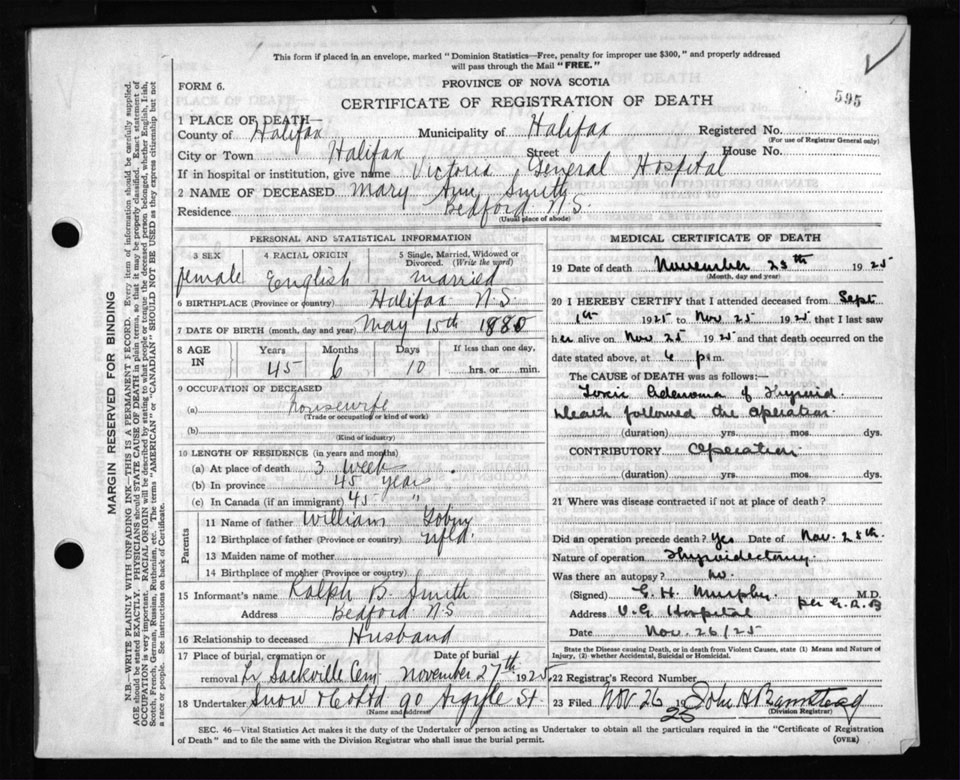 This form if placed in an envelope, marked "Dominion Statistics—Free, penalty for improper use $300," and properly addressed
will pass through the Mail "FREE."
FORM 6.
PROVINCE OF NOVA SCOTIA
CERTIFICATE OF REGISTRATION OF DEATH
595
1 PLACE OF DEATH—
County of Halifax Municipality of Halifax Registered No.
(For use of Registrar General only)
City or Town Halifax Street House No.
If in hospital or institution, give name Victoria General Hospital
2 NAME OF DECEASED Mary Ann Smith
Residence Bedford N.S.
(Usual place of abode)
PERSONAL AND STATISTICAL INFORMATION
3 SEX 4 RACIAL ORIGIN 5 Single, Married, Widowed or
Divorced. (Write the word)
female English married
6 BIRTHPLACE (Province or country) Halifax N.S
7 DATE OF BIRTH (month, day and year) May 15th 1880
8 AGE IN Years Months Days If less than one day,
45 6 10 hrs. or min.
9 OCCUPATION OF DECEASED
(a) housewife
(Trade or occupation or kind of work)
(b)
(Kind of industry)
10 LENGTH OF RESIDENCE (in years and months)
(a) At place of death 3 weeks
(b) In province 45 years
(c) In Canada (if an immigrant) 45 "
Parents
11 Name of father William
12 Birthplace of father (Province or country) Nfld.
13 Maiden name of mother
14 Birthplace of mother (Province or country)
15 Informant's name Ralph B. Smith
Address Bedford N.S
16 Relationship to deceased Husband
17 Place of burial, cremation or Date of burial
removal Lr Sackville Cem November 27th 1925
18 Undertaker Snow & Co Ltd 90 Argyle St
(Name and address)
MEDICAL CERTIFICATE OF DEATH
19 Date of death November 25th 1925
(Month, day and year)
20 I HEREBY CERTIFY that I attended deceased from Sept
1st 1925 to Nov 25 1925 that I last saw
her alive on Nov 25 1925 and that death occurred on the
date stated above, at 6 p.m.
The CAUSE OF DEATH was as follows:—
Toxic Adenoma of Thyroid.
Death followed the operation
(duration) yrs. mos. dys.
CONTRIBUTORY Operation
(duration) yrs. mos. dys.
21 Where was disease contracted if not at place of death?
Did an operation precede death? Yes Date of Nov. 25th.
Nature of operation Thyroidectomy
Was there an autopsy? no.
(Signed) G. H. Murphy M.D.
per G.R.B
Address V.G. Hospital
Date Nov. 26/25
State the Disease causing Death, or in death from Violent Causes, state (1) Means and Nature of
Injury, (2) whether Accidental, Suicidal or Homicidal.
22 Registrar's Record Number
23 Filed Nov 26 1925 John H Barnstead
(Division Registrar)
SEC. 46—Vital Statistics Act makes it the duty of the Undertaker or person acting as Undertaker to obtain all the particulars required in the "Certificate of Registration
of Death" and to file the same with the Division Registrar who shall issue the burial permit.
(OVER)
MARGIN RESERVED FOR BINDING
N.B.—WRITE PLAINLY WITH UNFADING INK—THIS IS A PERMANENT RECORD. Every item of information should be carefully supplied.
AGE should be stated EXACTLY. PHYSICIANS should STATE CAUSE OF DEATH in plain terms, so that it may be properly classified. Exact statement of
OCCUPATION is very important. RACIAL ORIGIN will be described by stating to what people or tongue the deceased person belonged, whether English, Irish,
Scotch, French, German, Russian, Ruthenian, etc. The terms "AMERICAN" or "CANADIAN" SHOULD NOT BE USED as they express citizenship but not
a race or people. See instructions on back of Certificate.